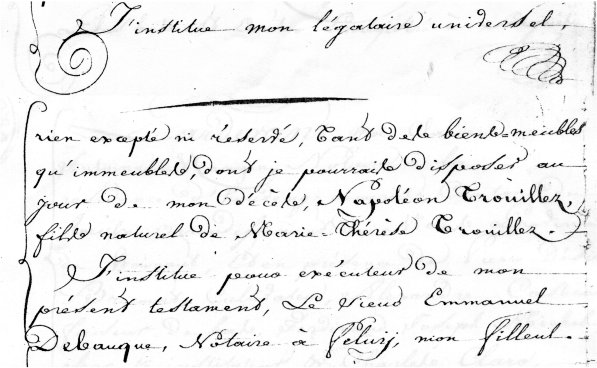 J'institue mon légataire universel,
rien excepté ni réservé, tant de la biens-meubles
qu'immeubles, dont je pourrais disposer au
jour de mon décès, Napoléon Trouillez,
fils naturel de Marie-Thérèse Trouillez.
J'institue pour exécuteur de mon
présent testament, Le sieur Emmanuel
Debauque, Notaire à Feluy, mon filleul.